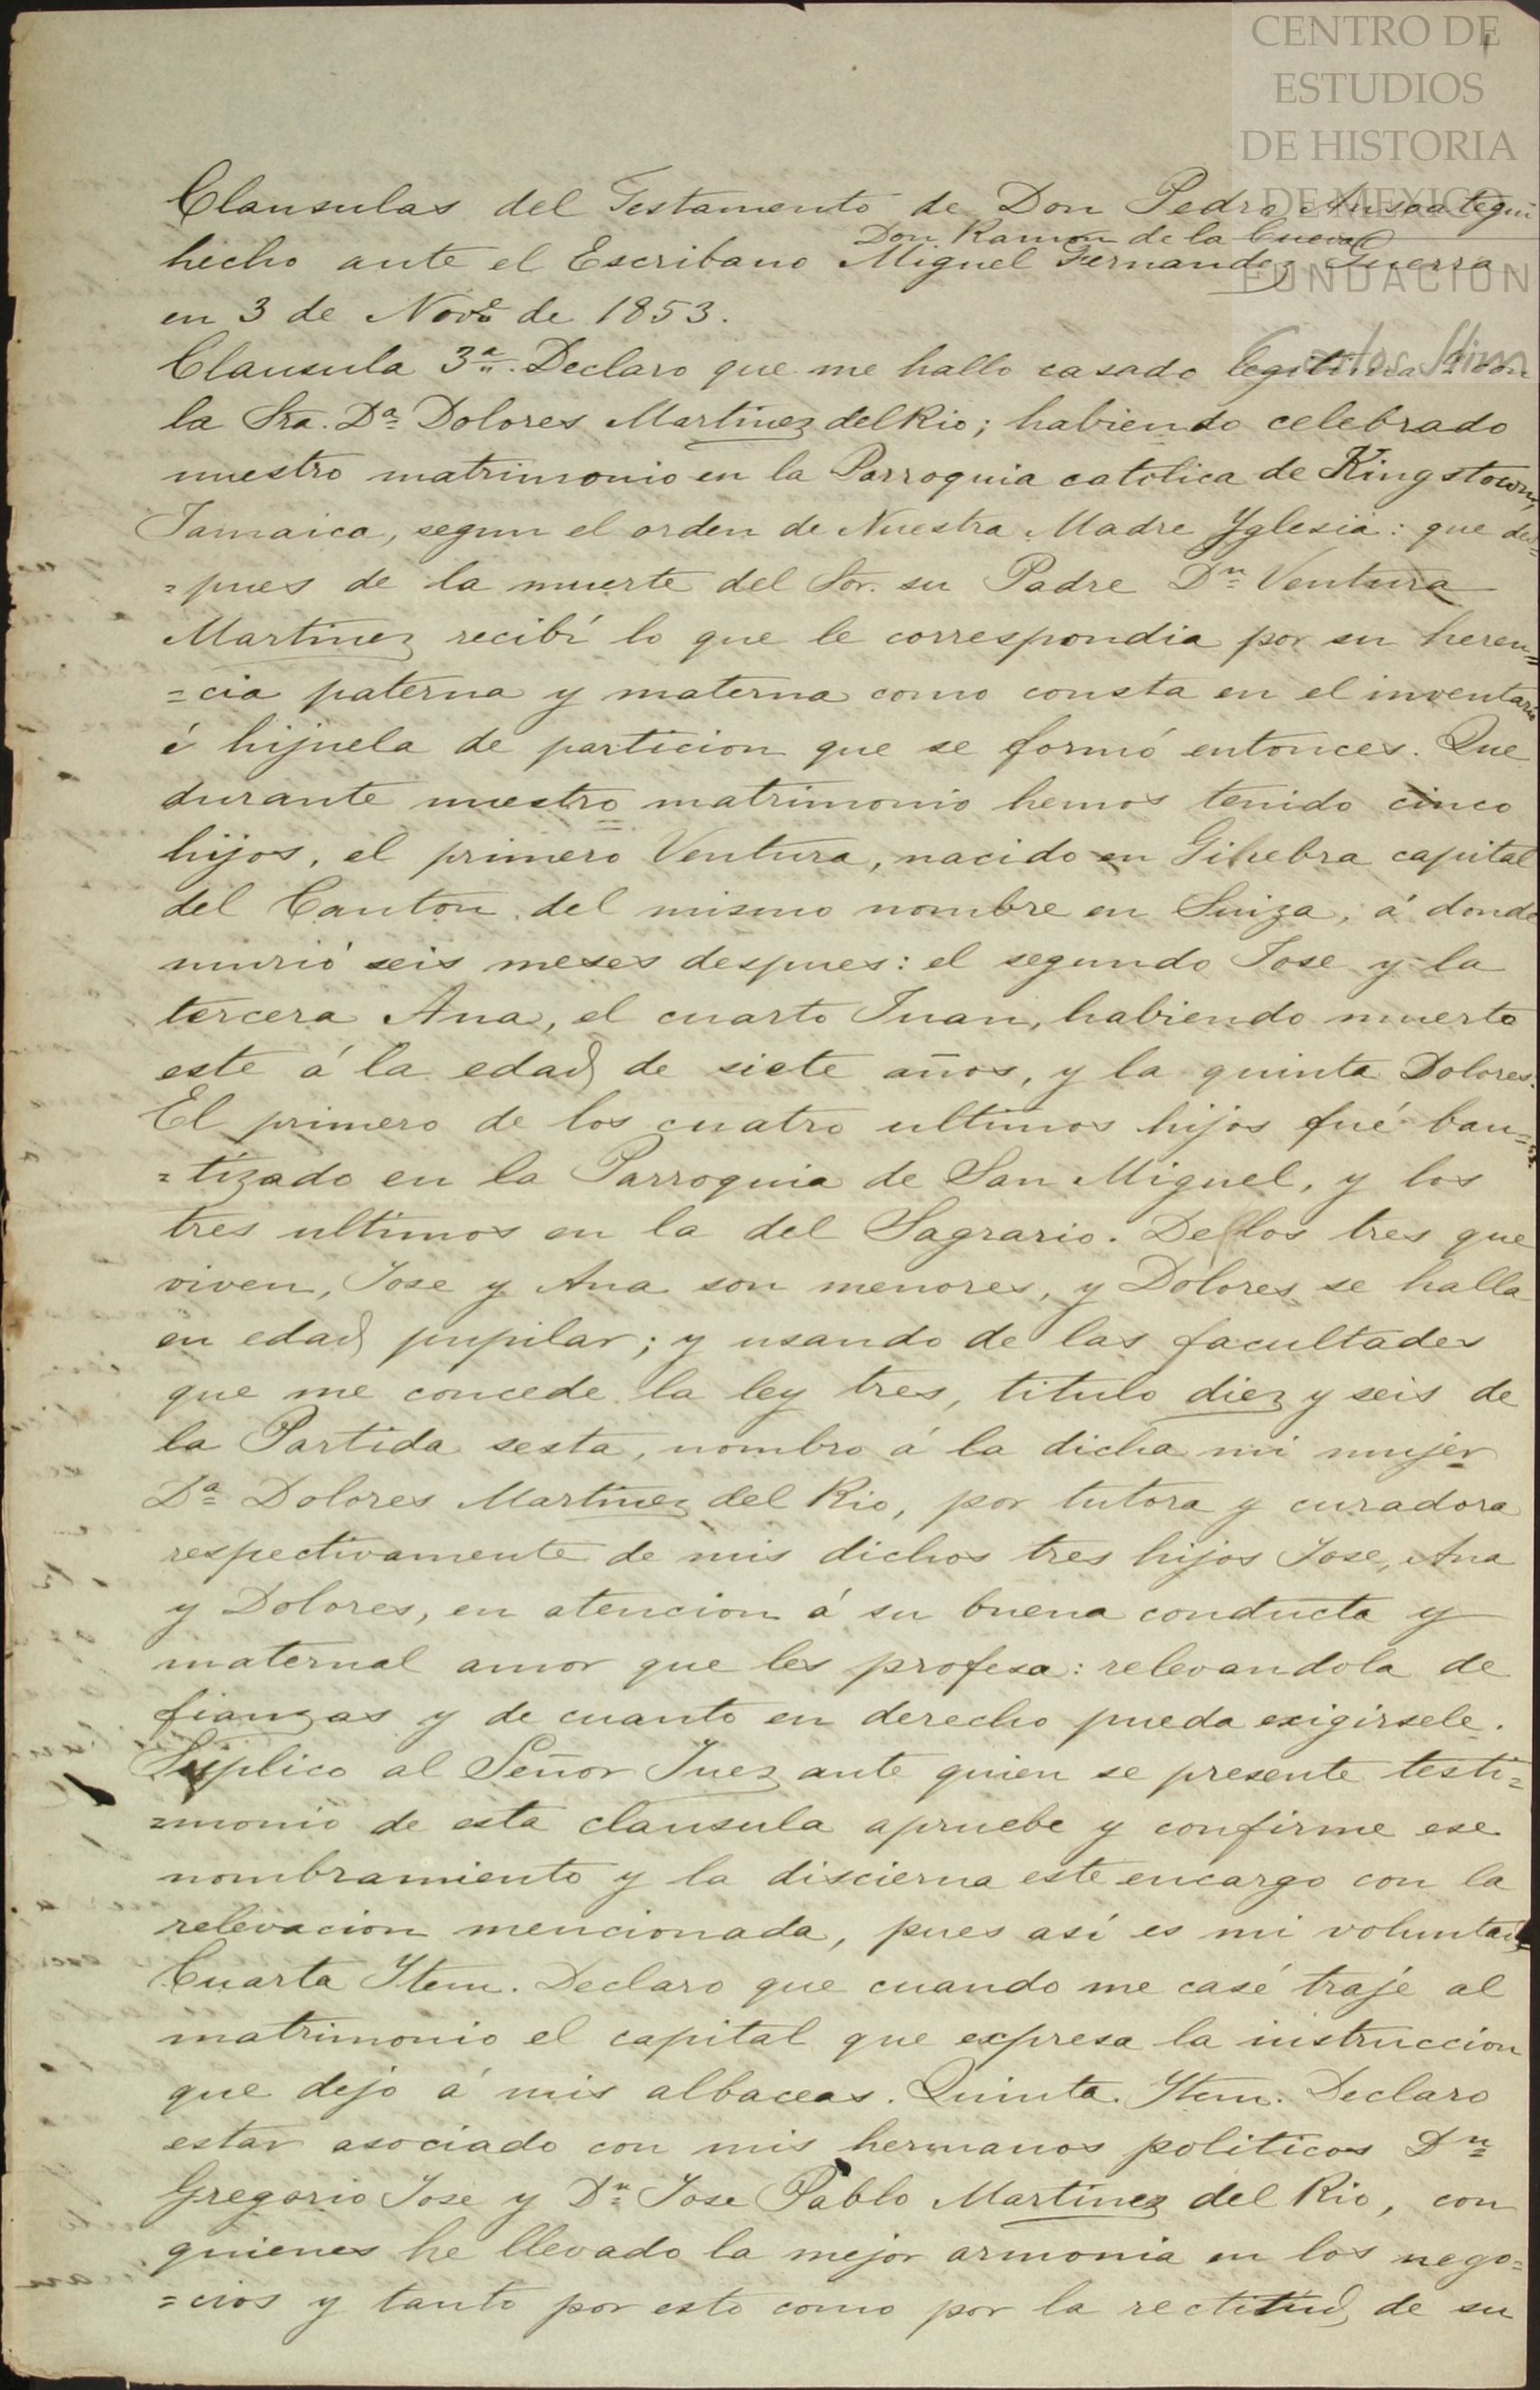 CENTRO DE
ESTUDIOS
DE HISTORIA
DE MEXICO
FUNDACION
Carlos Slim
Clausulas del Testamento de Don Pedro Ansoategui
Don Ramon de la Cueva
hecho ante el Escribano Miguel Fernandez Guerra
en 3 de Novᵉ de 1853.
Clausula 3ª. Declaro que me hallo casado con
la Sra. Dª Dolores Martinez del Rio; habiendo celebrado
nuestro matrimonio en la Parroquia catolica de Kingstown,
Jamaica, segun el orden de Nuestra Madre Yglesia: que des=
=pues de la muerte del Sor. su Padre Dⁿ Ventura
Martinez recibí lo que le correspondia por su heren=
=cia paterna y materna como consta en el inventario
é hijuela de particion que se formó entonces. Que
durante nuestro matrimonio hemos tenido cinco
hijos, el primero Ventura, nacido en Ginebra capital
del Canton del mismo nombre en Suiza, á donde
murió seis meses despues: el segundo Jose y la
tercera Ana, el cuarto Juan, habiendo muerto
este á la edad de siete años, y la quinta Dolores.
El primero de los cuatro ultimos hijos fué bau=
=tizado en la Parroquia de San Miguel, y los
tres ultimos en la del Sagrario. De los tres que
viven, Jose y Ana son menores, y Dolores se halla
en edad pupilar; y usando de las facultades
que me concede la ley tres, titulo diez y seis de
la Partida sesta, nombro á la dicha mi mujer
Dª Dolores Martinez del Rio, por tutora y curadora
respectivamente de mis dichos tres hijos Jose, Ana
y Dolores, en atencion á su buena conducta y
maternal amor que les profesa: relevandola de
fianzas y de cuanto en derecho pueda exigirsele.
Suplico al Señor Juez ante quien se presente testi=
=monio de esta clausula apruebe y confirme ese
nombramiento y la discierna este encargo con la
relevacion mencionada, pues así es mi voluntad
Cuarta Ytem. Declaro que cuando me casé traje al
matrimonio el capital que expresa la instruccion
que dejo á mis albaceas. Quinta. Ytem. Declaro
estar asociado con mis hermanos politicos Dⁿ
Gregorio Jose y Dⁿ Jose Pablo Martinez del Rio, con
quienes he llevado la mejor armonia en los nego=
=cios y tanto por esto como por la rectitud de su